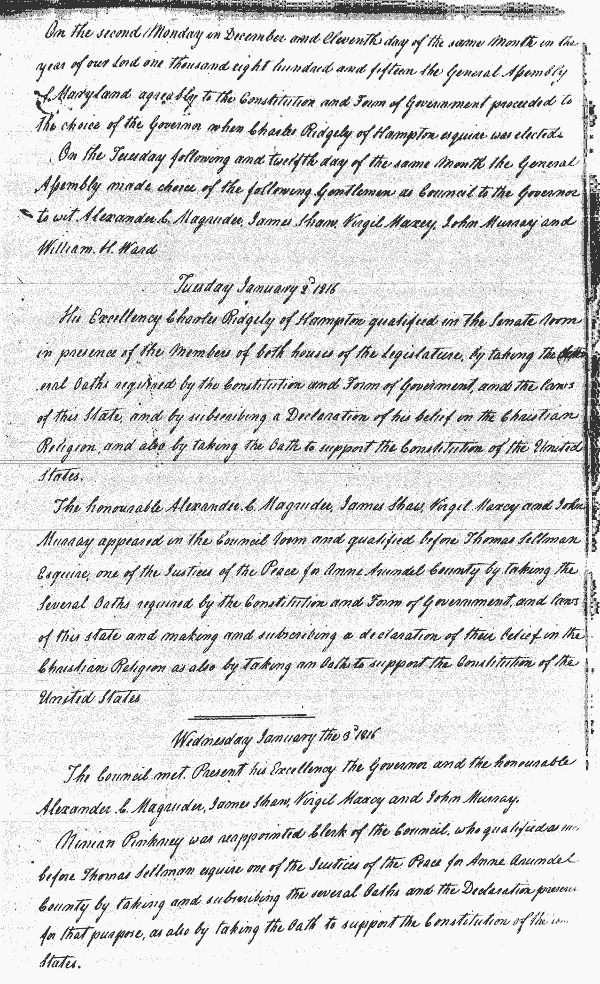 On the second Monday in December and Eleventh day of the same Month in the
year of our Lord one thousand eight hundred and fifteen the General Assembly
of Maryland agreeably to the Constitution and Form of Government proceeded to
the choice of the Governor when Charles Ridgely of Hampton esquire was elected.
On the Tuesday following and twelfth day of the same Month the General
Assembly made choice of the following Gentlemen as Council to the Governor
to wit. Alexander C. Magruder, James Shaw, Virgil Maxcy, John Murray and
William. H. Ward
Tuesday January 2d 1816
His Excellency Charles Ridgely of Hampton qualified in the Senate room
in presence of the Members of both houses of the Legislature, by taking the
eral Oaths required by the Constitution and Form of Goverment, and the laws
of this State, and by subscribing a Declaration of his belief in the Christian
Religion, and also by taking the Oath to support the Constitution of the United
States.
The honourable Alexander. C. Magruder, James Shaw, Virgil Maxcy and John
Murray appeared in the Council room and qualified before Thomas Sellman
Esquire, one of the Justices of the Peace for Anne Arundel County by taking the
several Oaths required by the Constitution and Form of Government, and laws
of this state and making and subscribing a declaration of their belief in the
Christian Religion as also by taking an Oath to support the Constitution of the
United States
Wednesday January the 3d 1816
The Council met. Present his Excellency the Governor and the honourable
Alexander. C. Magruder, James Shaw, Virgil Maxcy and John Murray.
Ninian Pinkney was reappointed Clerk of the Council, who qualified as such
before Thomas Sellman esquire one of the Justices of the Peace for Anne Arundel
County by taking and subscribing the several Oaths and the Declaration
for that purpose, as also by taking the Oath to support the Constitution of the
States.